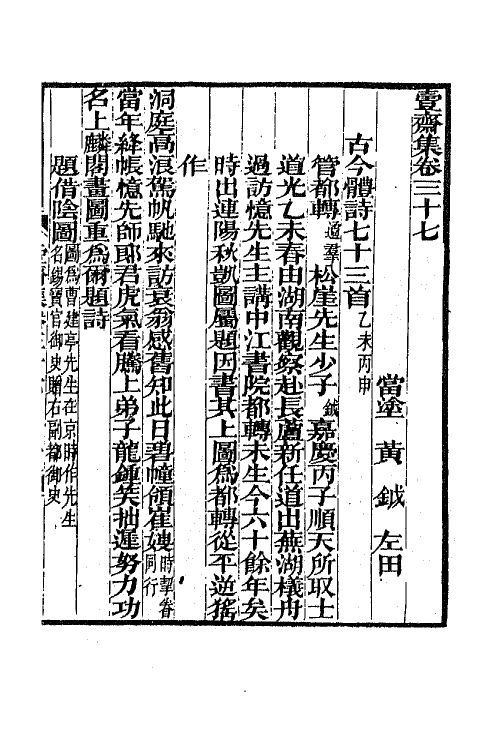 壹齋集卷三十七
當塗 黃 鉞 左田
古今體詩七十三首乙未丙申
管都轉遵羣松崖先生少子鉞嘉慶丙子順天所取士
道光乙未春由湖南觀察赴長蘆新任道出蕪湖檥舟
過訪憶先生主講中江書院都轉未生今六十餘年矣
時出連陽秋凱圖屬題因書其上圖爲都轉從平逆猺
作
洞庭高浪駕帆馳來訪衰翁感舊知此日碧幢領崔嫂時挈眷同行
當年絳帳憶先師郎君虎氣看騰上弟子龍鍾笑拙遲努力功
名上麟閣畫圖重爲爾題詩
題借陰圖圖爲曹建亭先生在京時作先生名錫寶官御史贈右副都御史